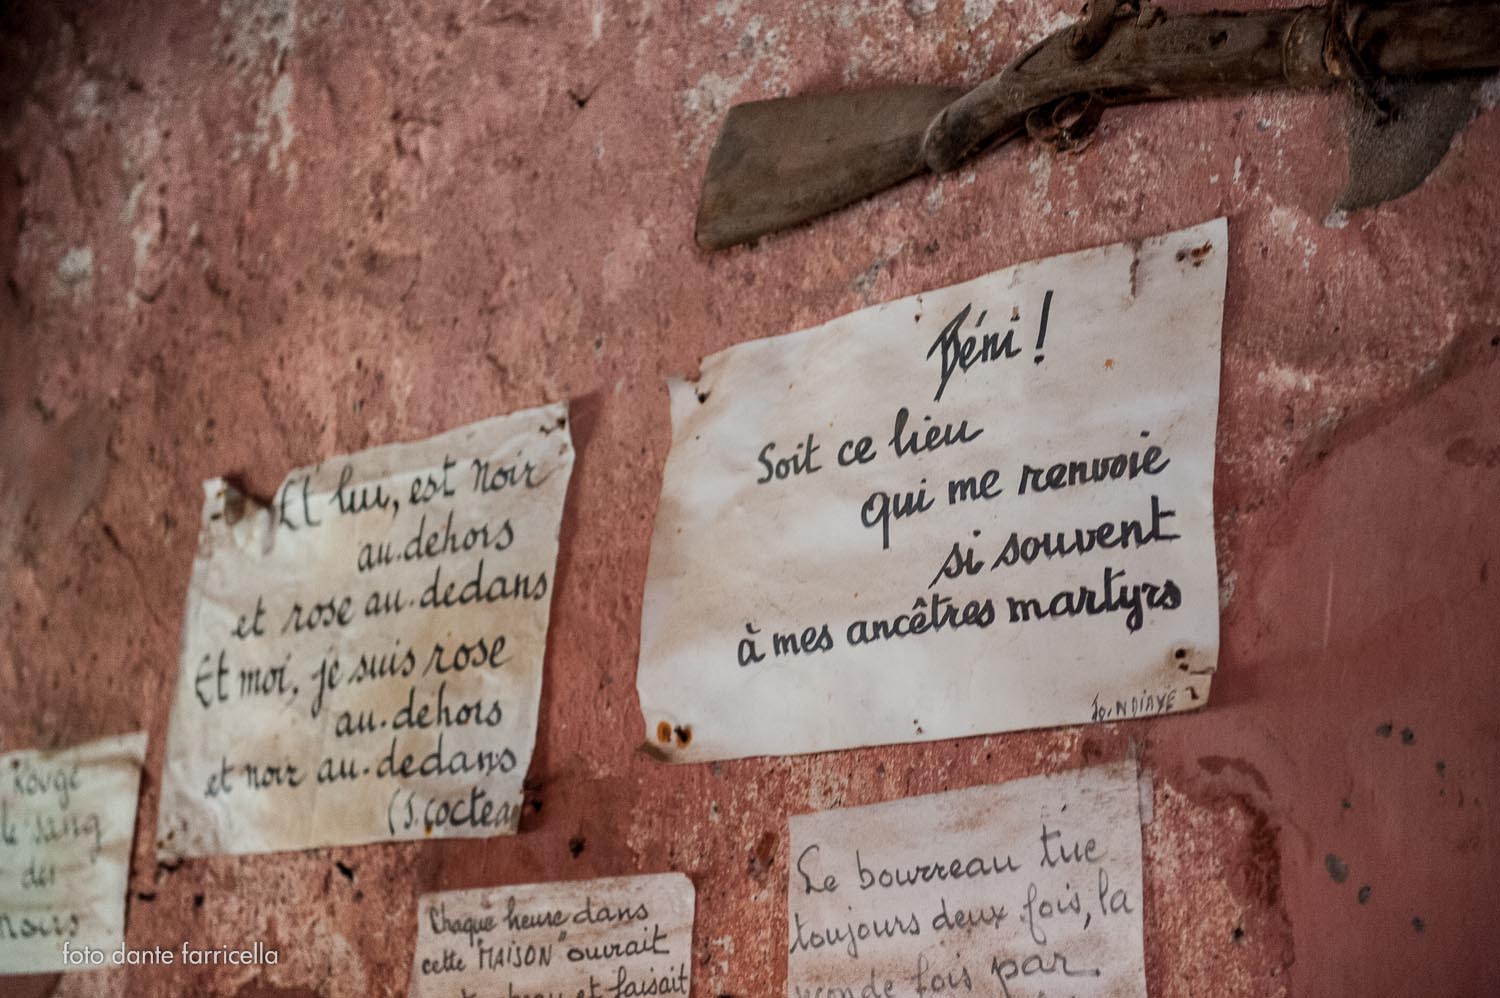 Béni !
Soit ce lieu
qui me renvoie
si souvent
à mes ancêtres martyrs
Jo. NDIAYE
Et lui, est noir
au.dehors
et rose au.dedans
Et moi, je suis rose
au.dehors
et noir au.dedans
(J. Coctea
Rouge
le sang
des
noirs
Chaque heure dans
cette "MAISON" ouvrait
et faisait
Le bourreau tue
toujours deux fois, la
seconde fois par
foto dante farricella